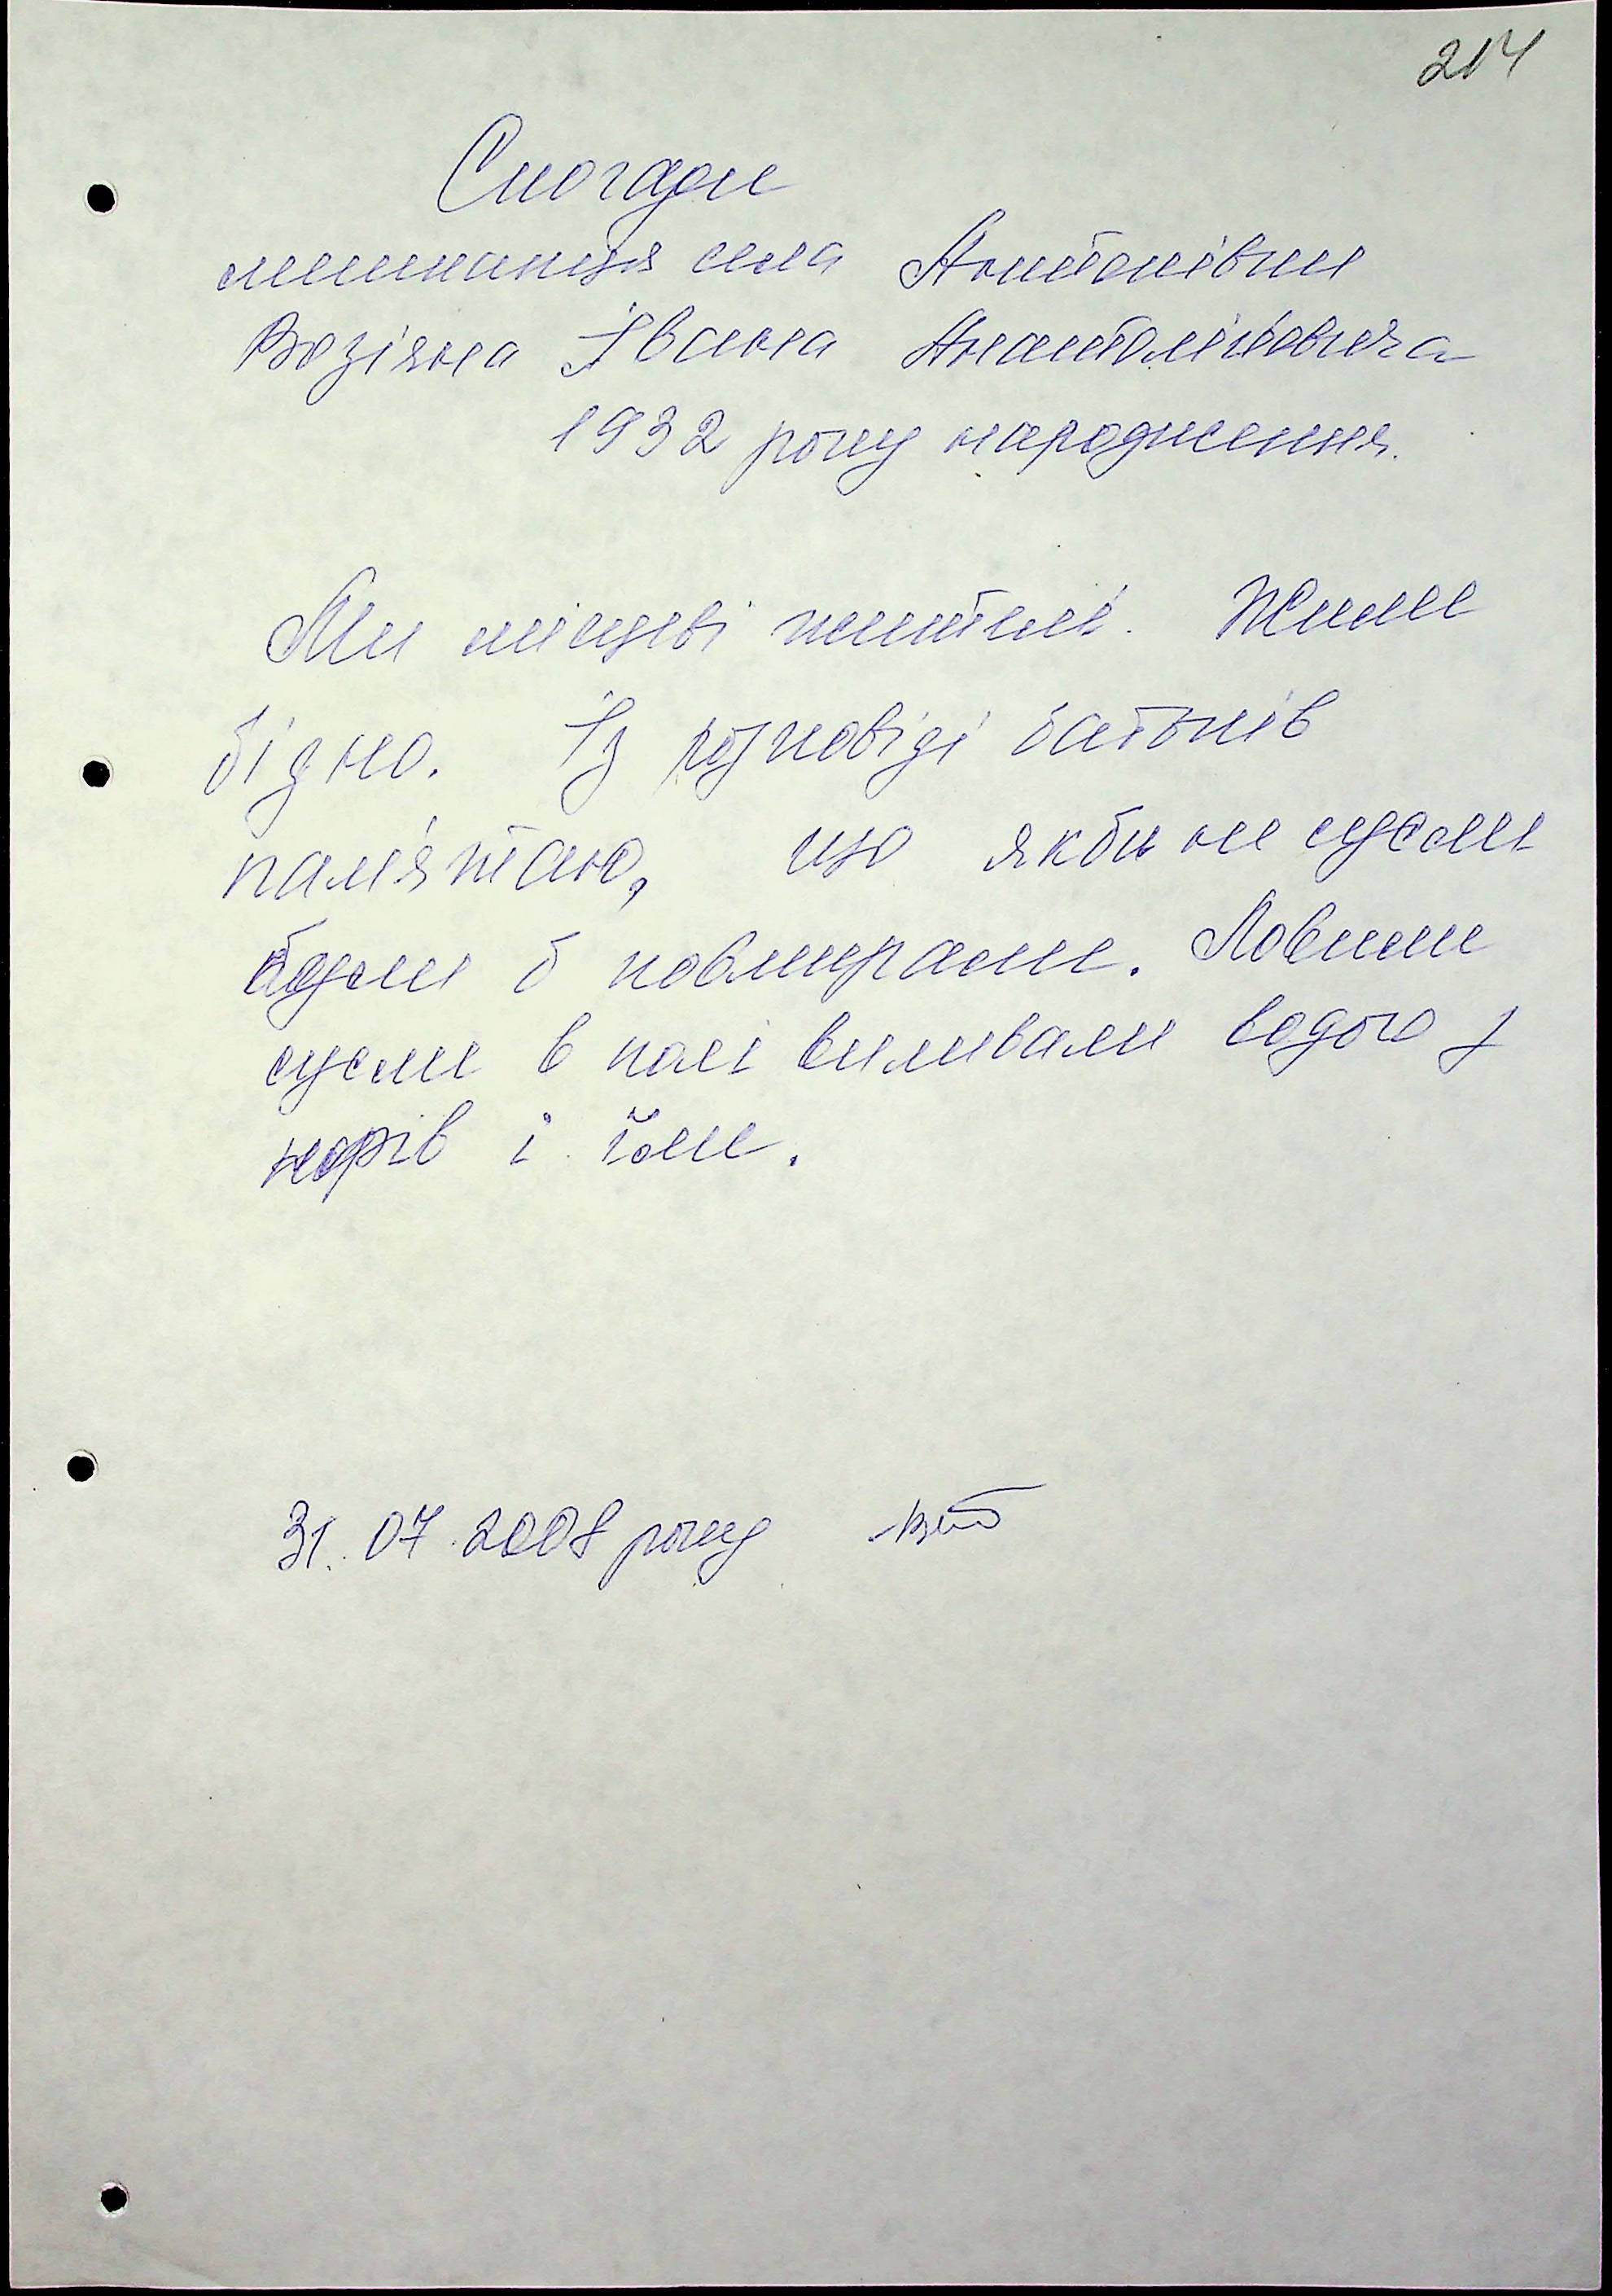 214
Спогади
мешканця села Антонівни
Возіяна Івана Анатолійовича
1932 року народження.
Ми місцеві жителі. Жили
бідно. Із розповіді батьків
пам'ятаю, що якби не сусли
б повмирали. Ловили
сусли в полі виливали водою з
норів і їли.
31.07.2008 року